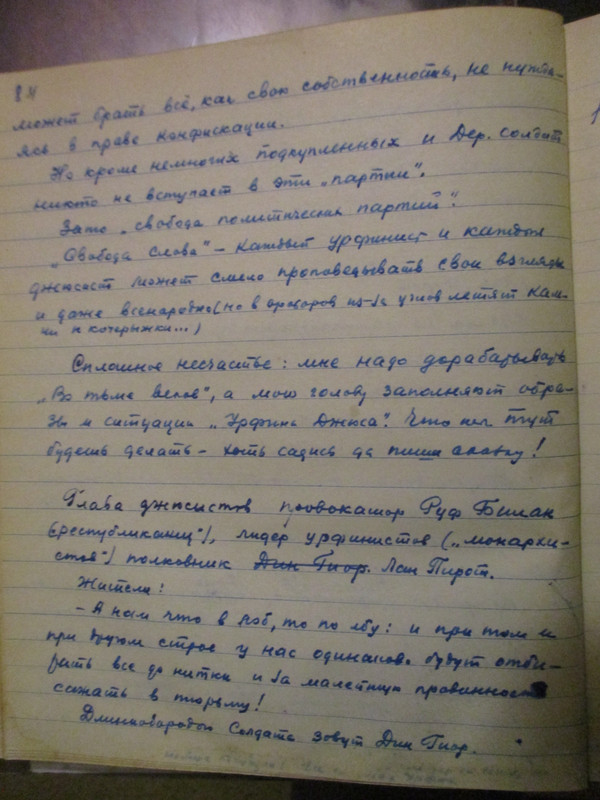 84
может брать всё, как свою собственность, не нужда-
ясь в праве конфискации.
Но кроме немногих подкупленных и Дер. солдат
никто не вступает в эти „партии".
Зато „свобода политических партий".
„Свобода слова" – каждый урфинист и каждый
джюсист может смело проповедывать свои взгляды
и даже всенародно (но в ораторов из-за углов летят кам-
ни и кочерыжки...)
Сплошное несчастье: мне надо дорабатывать
„Во тьме веков", а мою голову заполняют обра-
зы и ситуации „Урфина Джюса". Что ты тут
будешь делать – хоть садись да пиши сказку!
Глава джюсистов провокатор Руф Билан
(„республиканцы"), лидер урфинистов („монархи-
стов") полковник Дин Гиор. Лан Пирот.
Жители:
– А нам что в лоб, то по лбу: и при том и
при другом строе у нас одинаково будут отби-
рать все до нитки и за малейшую провинность
сажать в тюрьму!
Длиннобородого Солдата зовут Дин Гиор.